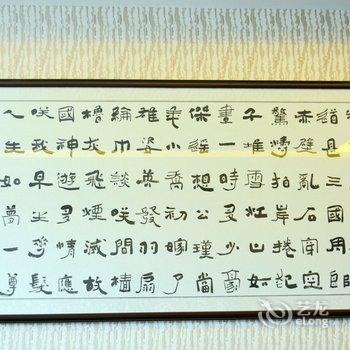 道是三國周郎
赤壁亂石穿空
驚濤拍岸捲起
千堆雪江山如
畫一時多少豪
傑遙想公瑾當
年小喬初嫁了
雄姿英發羽扇
綸巾談咲間檣
櫓灰飛煙滅故
國神遊多情應
咲我早生華髮
人生如夢一尊
艺龙
eLong.com